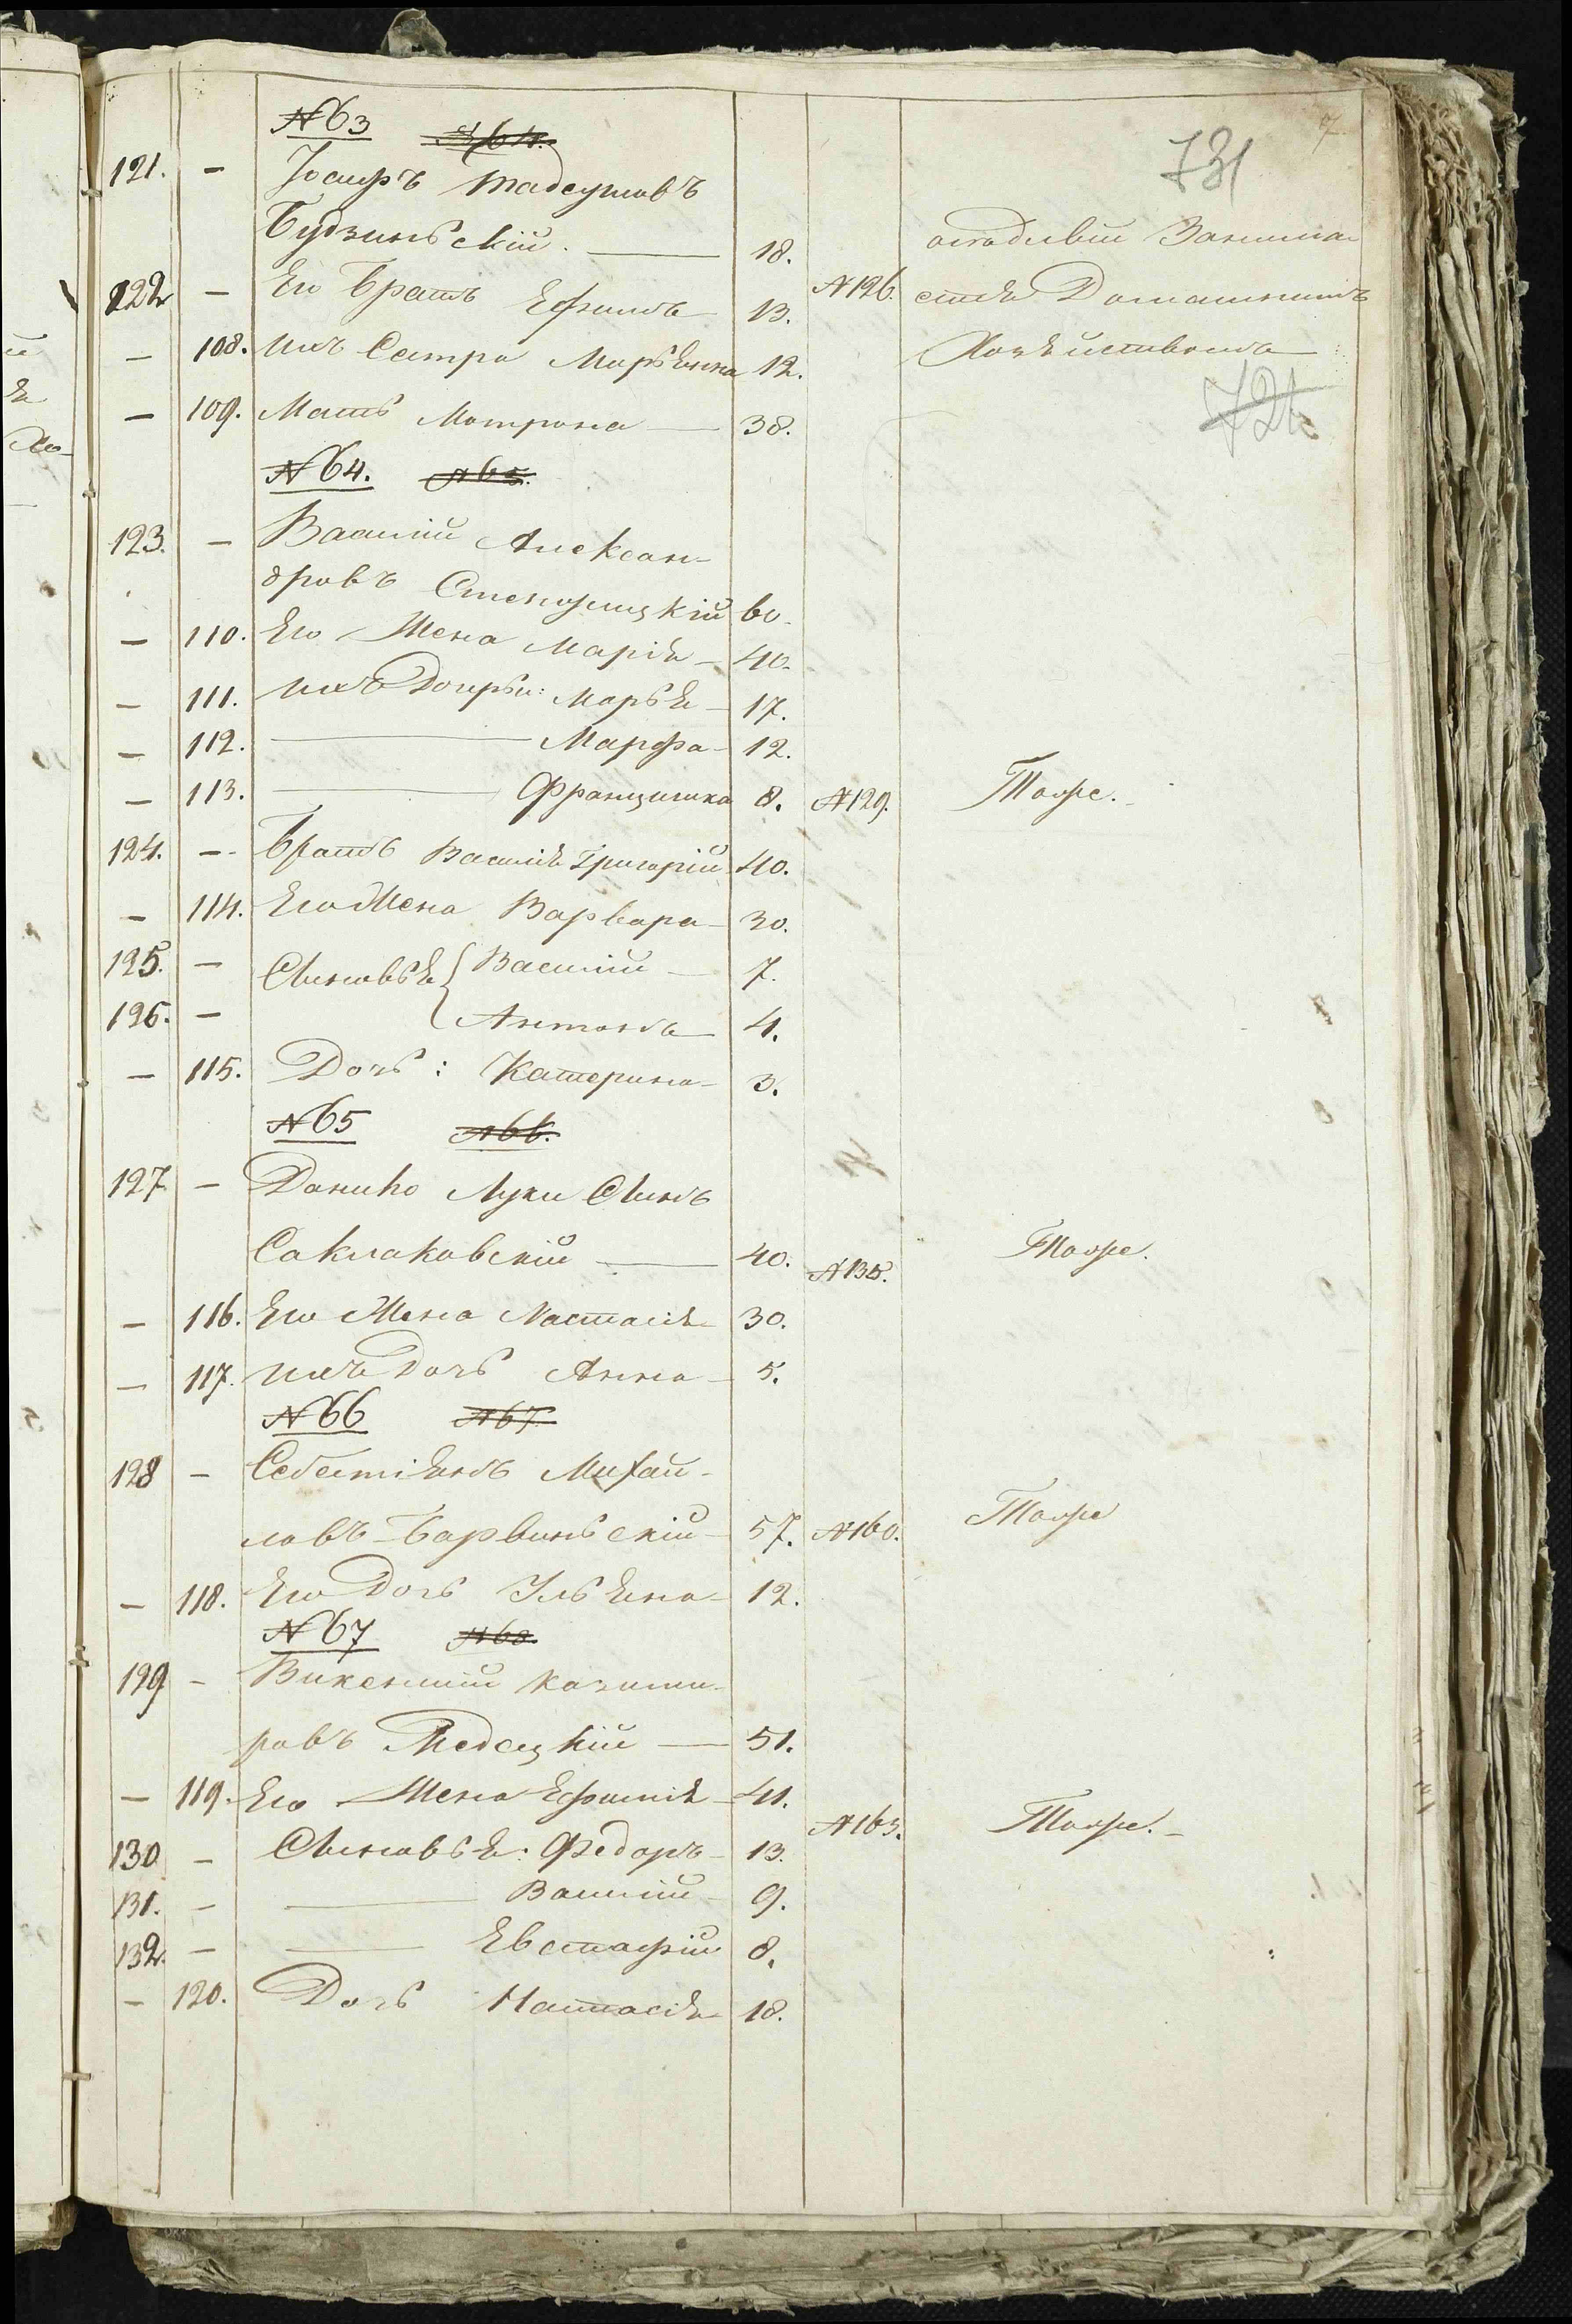 7
731
№ 63 № 64.
121. - Іосифъ Тадеушовъ
Будзиньскій. — 18. оседлый Занима
122 - Его Братъ Ефимъ 13. № 126. ется Домашнимъ
- 108. Ихъ Сестра Марьянна 12. Хозяйствомъ
- 109. Мать Мотрона — 38. 721
№ 64. № 65.
123. - Василій Алексан-
дровъ 60.
- 110. Его Жена Марія - 40.
- 111. Ихъ Дочери: Марья - 17.
- 112. — Марфа - 12.
- 113. — Францишка 8. № 129. Тоже.
124. - Братъ Василія Григорій 40.
- 114. Его Жена Варвара - 30.
125. - Сыновья { Василій - 7.
126. - Антонъ 4.
- 115. Дочь: Катерина - 3.
№ 65 № 66.
127 - Данило Луки Сынъ
Саклаковскій — 40. № 135. Тоже.
- 116. Его Жена Настасія 30.
- 117. Ихъ Дочь Анна - 5.
№ 66 № 67
128 - Себестіянъ Михай-
ловъ Барвиньскій - 57. № 160. Тоже
- 118. Его Дочь Ульяна - 12.
№ 67 № 68.
129 - Викентій Казими-
ровъ — 51.
- 119. Его Жена Ефимія - 41.
130 - Сыновья: Федоръ - 13. № 163. Тоже. -
131. - — Василій - 9.
132. - — Евстафій 8.
- 120. Дочь Настасія 18.